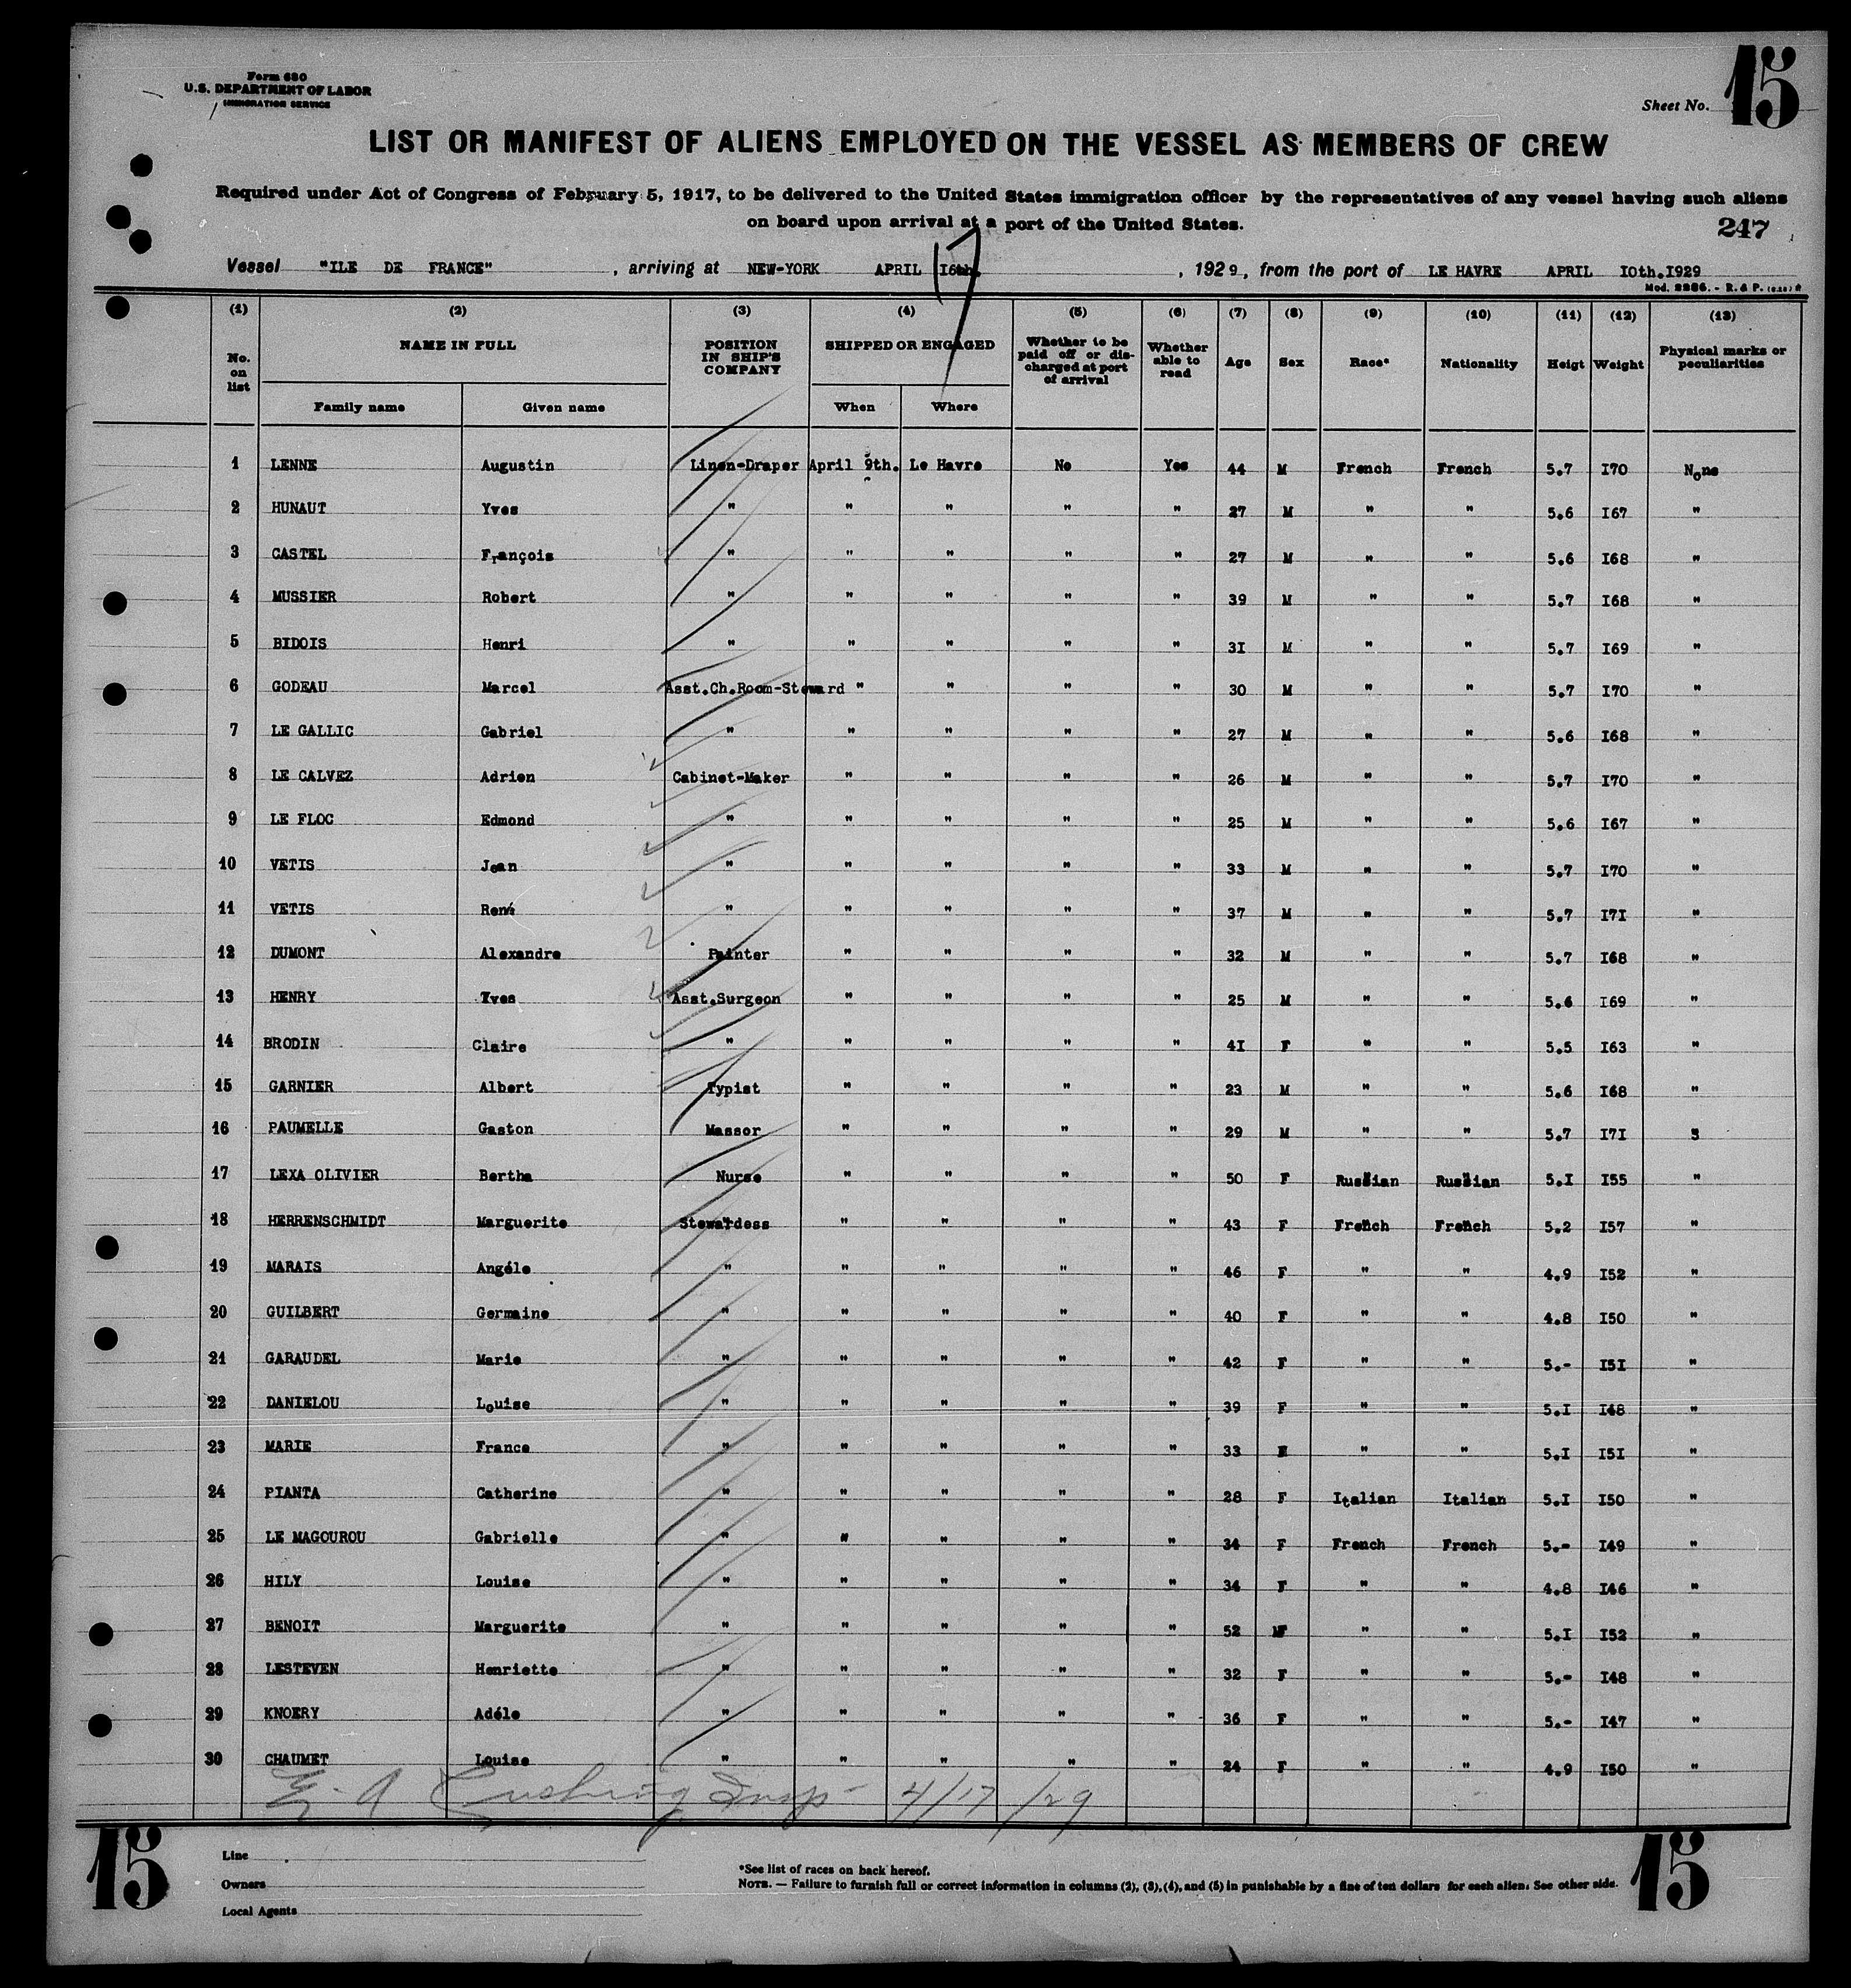 Form 680
U.S. DEPARTMENT OF LABOR
IMMIGRATION SERVICE
Sheet No. 15
LIST OR MANIFEST OF ALIENS EMPLOYED ON THE VESSEL AS MEMBERS OF CREW
Required under Act of Congress of February 5, 1917, to be delivered to the United States immigration officer by the representatives of any vessel having such aliens
on board upon arrival at a port of the United States.
247
Vessel "ILE DE FRANCE", arriving at NEW-YORK APRIL I6th. 17, 1929, from the port of LE HAVRE APRIL I0th.I929
Mod. 2286. - R. & P.
(1) (2) (3) (4) (5) (6) (7) (8) (9) (10) (11) (12) (13)
No. on list NAME IN FULL POSITION IN SHIP'S COMPANY SHIPPED OR ENGAGED Whether to be paid off or discharged at port of arrival Whether able to read Age Sex Race* Nationality Heigt Weight Physical marks or peculiarities
Family name Given name When Where
1 LENNE Augustin Linen-Draper April 9th. Le Havre No Yes 44 M French French 5.7 I70 None
2 HUNAUT Yves " " " " " 27 M " " 5.6 I67 "
3 CASTEL François " " " " " 27 M " " 5.6 I68 "
4 MUSSIER Robert " " " " " 39 M " " 5.7 I68 "
5 BIDOIS Henri " " " " " 3I M " " 5.7 I69 "
6 GODEAU Marcel Asst.Ch.Room-Steward " " " " 30 M " " 5.7 I70 "
7 LE GALLIC Gabriel " " " " " 27 M " " 5.6 I68 "
8 LE CALVEZ Adrien Cabinet-Maker " " " " 26 M " " 5.7 I70 "
9 LE FLOC Edmond " " " " " 25 M " " 5.6 I67 "
10 VETIS Jean " " " " " 33 M " " 5.7 I70 "
11 VETIS René " " " " " 37 M " " 5.7 I7I "
12 DUMONT Alexandre Painter " " " " 32 M " " 5.7 I68 "
13 HENRY Yves Asst.Surgeon " " " " 25 M " " 5.6 I69 "
14 BRODIN Claire " " " " " 4I F " " 5.5 I63 "
15 GARNIER Albert Typist " " " " 23 M " " 5.6 I68 "
16 PAUMELLE Gaston Massor " " " " 29 M " " 5.7 I7I "
17 LEXA OLIVIER Bertha Nurse " " " " 50 F Russian Russian 5.I I55 "
18 HERRENSCHMIDT Marguerite Stewardess " " " " 43 F French French 5.2 I57 "
19 MARAIS Angéle " " " " " 46 F " " 4.9 I52 "
20 GUILBERT Germaine " " " " " 40 F " " 4.8 I50 "
21 GARAUDEL Marie " " " " " 42 F " " 5.- I5I "
22 DANIELOU Louise " " " " " 39 F " " 5.I I48 "
23 MARIE France " " " " " 33 F " " 5.I I5I "
24 PIANTA Catherine " " " " " 28 F Italian Italian 5.I I50 "
25 LE MAGOUROU Gabrielle " " " " " 34 F French French 5.- I49 "
26 HILY Louise " " " " " 34 F " " 4.8 I46 "
27 BENOIT Marguerite " " " " " 52 F " " 5.I I52 "
28 LESTEVEN Henriette " " " " " 32 F " " 5.- I48 "
29 KNOERY Adéle " " " " " 36 F " " 5.- I47 "
30 CHAUMET Louise " " " " " 24 F " " 4.9 I50 "
E. A Cushing Insp - 4/17/29
15
Line
Owners
Local Agents
*See list of races on back hereof.
NOTE. — Failure to furnish full or correct information in columns (2), (3), (4), and (5) in punishable by a fine of ten dollars for each alien. See other side.
15